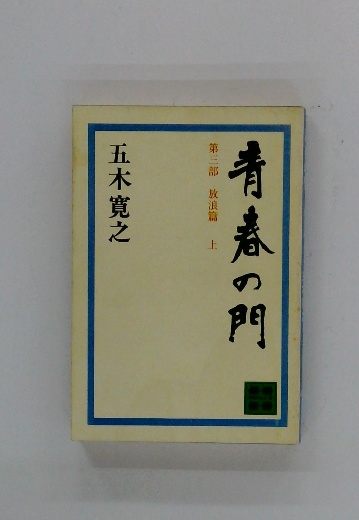 青春の門
第三部 放浪篇 上
五木寛之